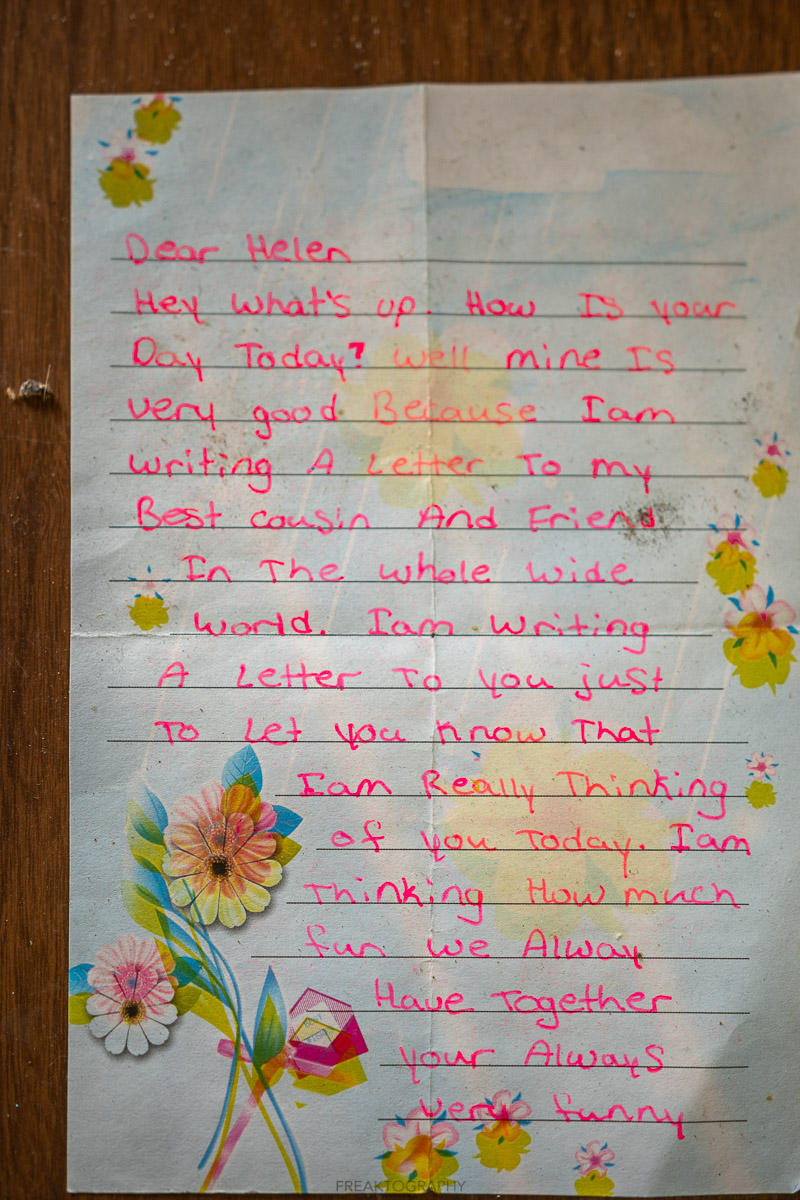 Dear Helen
Hey what's up. How Is your
Day Today? well mine Is
very good Because Iam
writing A Letter To my
Best cousin And Friend
In The whole wide
world. Iam writing
A Letter To you just
To Let you know That
Iam Really Thinking
of you Today. Iam
Thinking How much
fun we Alway
Have Together
your Always
very funny
FREAKTOGRAPHY